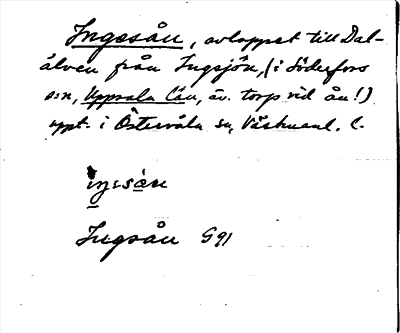 Ingesån, avloppet till Dal-
älven från Ingsjön, (i Söderfors
sn, Uppsala län, äv. torp vid ån!)
uppt. i Östervåla sn, Västmanl. l.
Ingsån G91